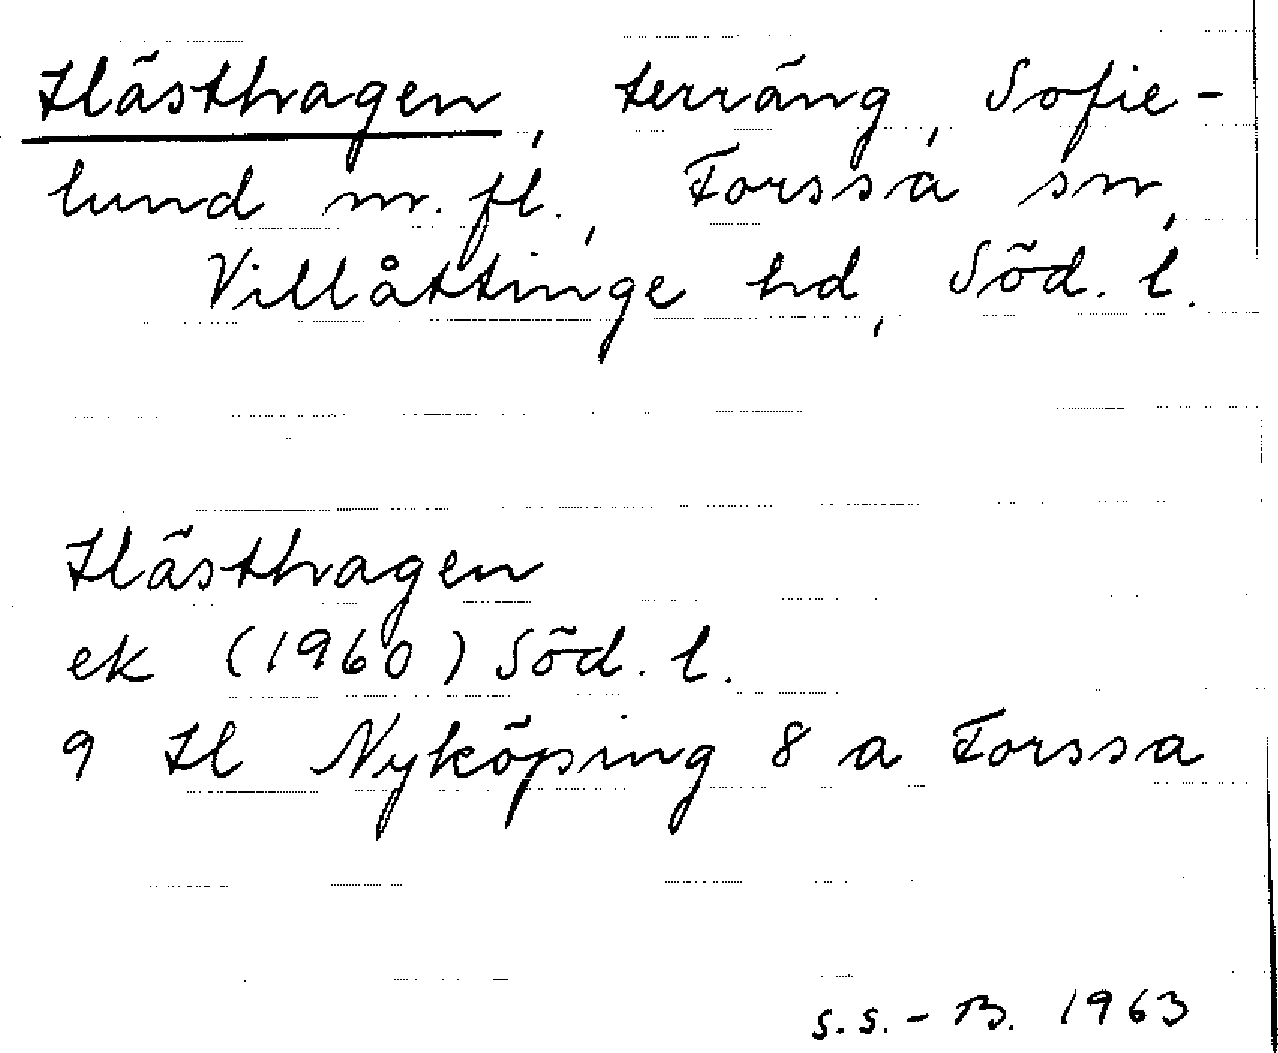 Hästhagen, terräng, Sofie-
lund m. fl., Forssa sn,
Villåttinge hd, Söd. l.
Hästhagen
ek (1960) Söd. l.
9 H Nyköping 8 a Forssa
S.S.-B. 1963